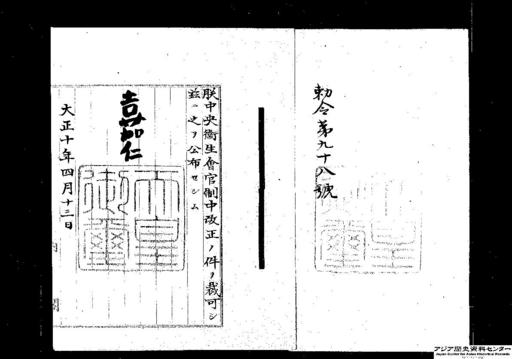 勅令第九十八號
朕中央衞生會官制中改正ノ件ヲ裁可シ
茲ニ之ヲ公布セシム
嘉仁
天皇
御璽
大正十年四月十三日
内閣
アジア歴史資料センター
Japan Center for Asian Historical Records